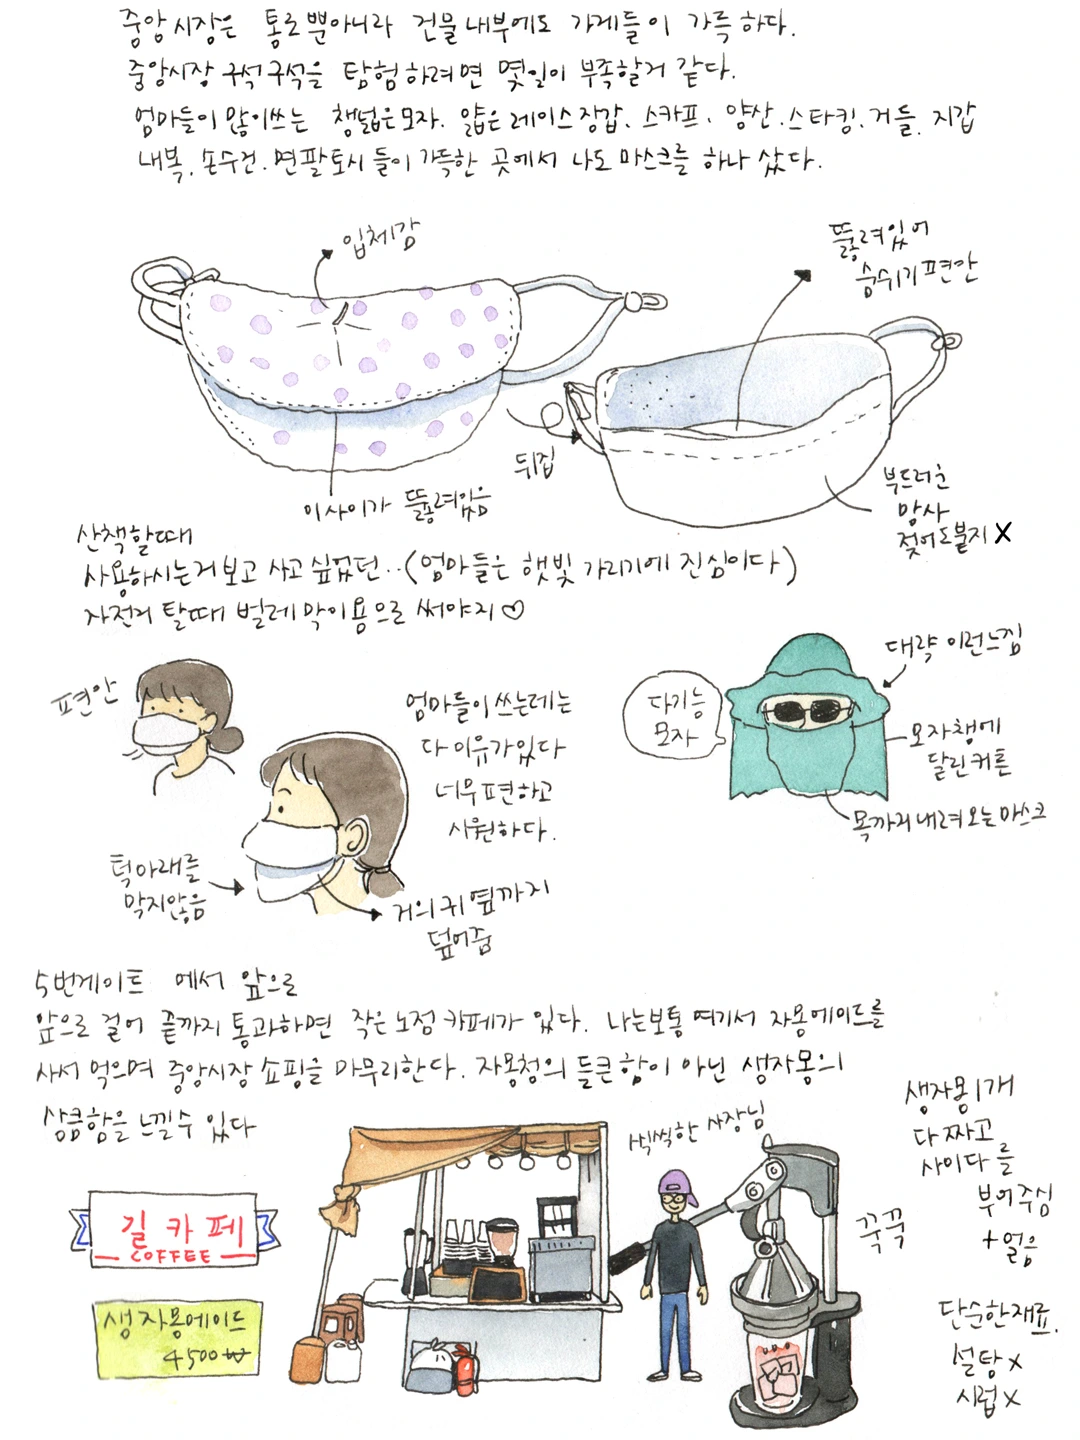 중앙시장은 통로뿐아니라 건물내부에도 가게들이 가득하다.
중앙시장 구석구석을 탐험하려면 몇일이 부족할거 같다.
엄마들이 많이쓰는 챙넓은모자. 얇은레이스장갑. 스카프. 양산. 스타킹. 거들. 지갑
내복. 손수건. 면팔토시 들이 가득한 곳에서 나도 마스크를 하나 샀다.
입체감
뚫려있어
숨쉬기편안
뒤집
이사이가 뚫려있음
부드러운
망사
젖어도붙지 X
산책할때
사용하시는거보고 사고싶었던..(엄마들은 햇빛 가리기에 진심이다)
자전거 탈때 벌레막이용으로 써야지♡
편안
엄마들이쓰는데는
다이유가있다
너무편하고
시원하다.
턱아래를
막지않음
거의귀옆까지
덮어줌
다기능
모자
대략 이런느낌
모자챙에
달린커튼
목까지내려오는마스크
5번게이트 에서 앞으로
앞으로 걸어 끝까지 통과하면 작은노점카페가 있다. 나는보통 여기서 자몽에이드를
사서 먹으며 중앙시장 쇼핑을 마무리한다. 자몽청의 들큰함이 아닌 생자몽의
상큼함을 느낄수 있다
씩씩한 사장님
길카페
COFFEE
생자몽에이드
4500₩
꾹꾹
생자몽1개
다짜고
사이다를
부어주심
+얼음
단순한재료.
설탕X
시럽X